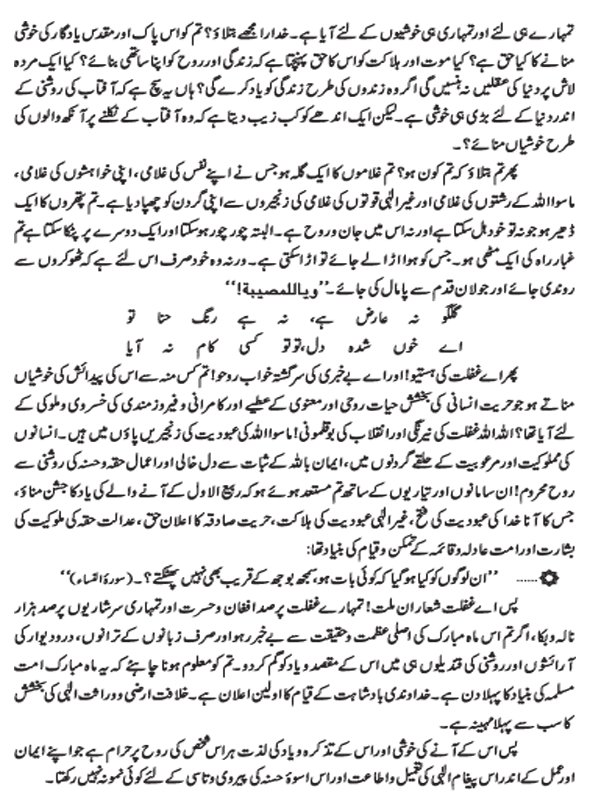 تمہارے ہی لئے اور تمہاری ہی خوشیوں کے لئے آیا ہے۔ خدارا مجھے بتلاؤ؟ تم کو اس پاک اور مقدس یادگار کی خوشی
منانے کا کیا حق ہے؟ کیا موت اور ہلاکت کو اس کا حق پہنچتا ہے کہ زندگی اور روح کو اپنا ساتھی بنائے؟ کیا ایک مردہ
لاش پر دنیا کی عقلیں نہ ہنسیں گی اگر وہ زندوں کی طرح زندگی کو یاد کرے گی؟ ہاں یہ سچ ہے کہ آفتاب کی روشنی کے
اندر دنیا کے لئے بڑی ہی خوشی ہے۔ لیکن ایک اندھے کو کب زیب دیتا ہے کہ وہ آفتاب کے نکلنے پر آنکھ والوں کی
طرح خوشیاں منائے؟۔
پھر تم بتلاؤ کہ تم کون ہو؟ تم غلاموں کا ایک گلہ ہو جس نے اپنے نفس کی غلامی، اپنی خواہشوں کی غلامی،
ماسوا اللہ کے رشتوں کی غلامی اور غیر الٰہی قوتوں کی غلامی کی زنجیروں سے اپنی گردن کو چھپا دیا ہے۔ تم پتھروں کا ایک
ڈھیر ہو جو نہ تو خود ہل سکتا ہے اور نہ اس میں جان و روح ہے۔ البتہ چور چور ہو سکتا اور ایک دوسرے پر پٹکا سکتا ہے تم
غبار راہ کی ایک مٹھی ہو۔ جس کو ہوا اڑا لے جائے تو اڑا سکتی ہے۔ ورنہ وہ خود صرف اس لئے ہے کہ ٹھوکروں سے
روندی جائے اور جولان قدم سے پامال کی جائے۔ ’’ویاللمصیبة!‘‘
گلگو نہ عارض ہے، نہ ہے رنگ حنا تو
اے خوں شدہ دل، تو تو کسی کام نہ آیا
پھر اے غفلت کی ہستیو! اور اے بے خبری کی سرگشتہ خواب روحو! تم کس منہ سے اس کی پیدائش کی خوشیاں
مناتے ہو جو حریت انسانی کی بخشش حیات روحی اور معنوی کے عطیے اور کامرانی و فیروزمندی کی خسروی و ملوکی کے
لئے آیا تھا؟ اللہ اللہ غفلت کی نیرنگی اور انقلاب کی بوقلمونی! ماسوا اللہ کی عبودیت کی زنجیریں پاؤں میں ہیں۔ انسانوں
کی مملوکیت اور مرعوبیت کے حلقے گردنوں میں، ایمان باللہ کے ثبات سے دل خالی اور اعمال حقہ و حسنہ کی روشنی سے
روح محروم! ان سامانوں اور تیاریوں کے ساتھ تم مستعد ہوئے ہو کہ ربیع الاول کے آنے والے کی یاد کا جشن مناؤ،
جس کا آنا خدا کی عبودیت کی فتح، غیر الٰہی عبودیت کی ہلاکت، حریت صادقہ کا اعلان حق، عدالت حقہ کی ملوکیت کی
بشارت اور امت عادلہ و قائمہ کے تمکن و قیام کی بنیاد تھا:
...... ’’ان لوگوں کو کیا ہو گیا کہ کوئی بات ہو، سمجھ بوجھ کے قریب بھی نہیں پھٹکتے؟۔ (سورۃ النساء)‘‘
پس اے غفلت شعاران ملت! تمہارے غفلت پر صد افغان و حسرت اور تمہاری سرشاریوں پر صد ہزار
نالہ و بکا، اگر تم اس ماہ مبارک کی اصلی عظمت و حقیقت سے بے خبر رہو اور صرف زبانوں کے ترانوں، در و دیوار کی
آرائشوں اور روشنی کی قندیلوں ہی میں اس کے مقصد و یاد کو گم کردو۔ تم کو معلوم ہونا چاہئے کہ یہ ماہ مبارک امت
مسلمہ کی بنیاد کا پہلا دن ہے۔ خداوندی بادشاہت کے قیام کا اولین اعلان ہے۔ خلافت ارضی و وراثت الٰہی کی بخشش
کا سب سے پہلا مہینہ ہے۔
پس اس کے آنے کی خوشی اور اس کے تذکرہ و یاد کی لذت ہر اس شخص کی روح پر حرام ہے جو اپنے ایمان
اور عمل کے اندر اس پیغام الٰہی کی تعمیل و اطاعت اور اس اسوۂ حسنہ کی پیروی و تاسی کے لئے کوئی نمونہ نہیں رکھتا۔